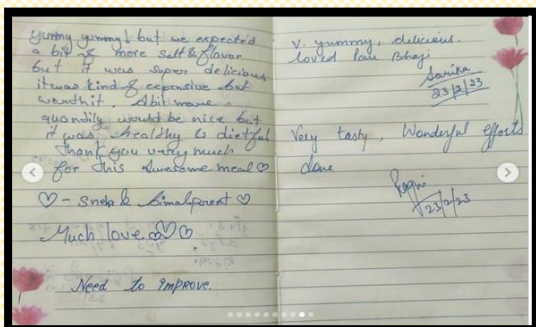 Yummy yummy! but we expected
a bit of more salt & flavor
but it was super delicious
it was kind of expensive but
worth it. A bit more
quantity would be nice but
it was healthy & dietful
thank you very much
for this awesome meal ♡
♡ - Sneha &
Much love ♡♡♡
Need to improve.
V. yummy, delicious.
loved Pau Bhaji
Sarika
23/2/23
Very tasty, Wonderful efforts
done
23/2/23